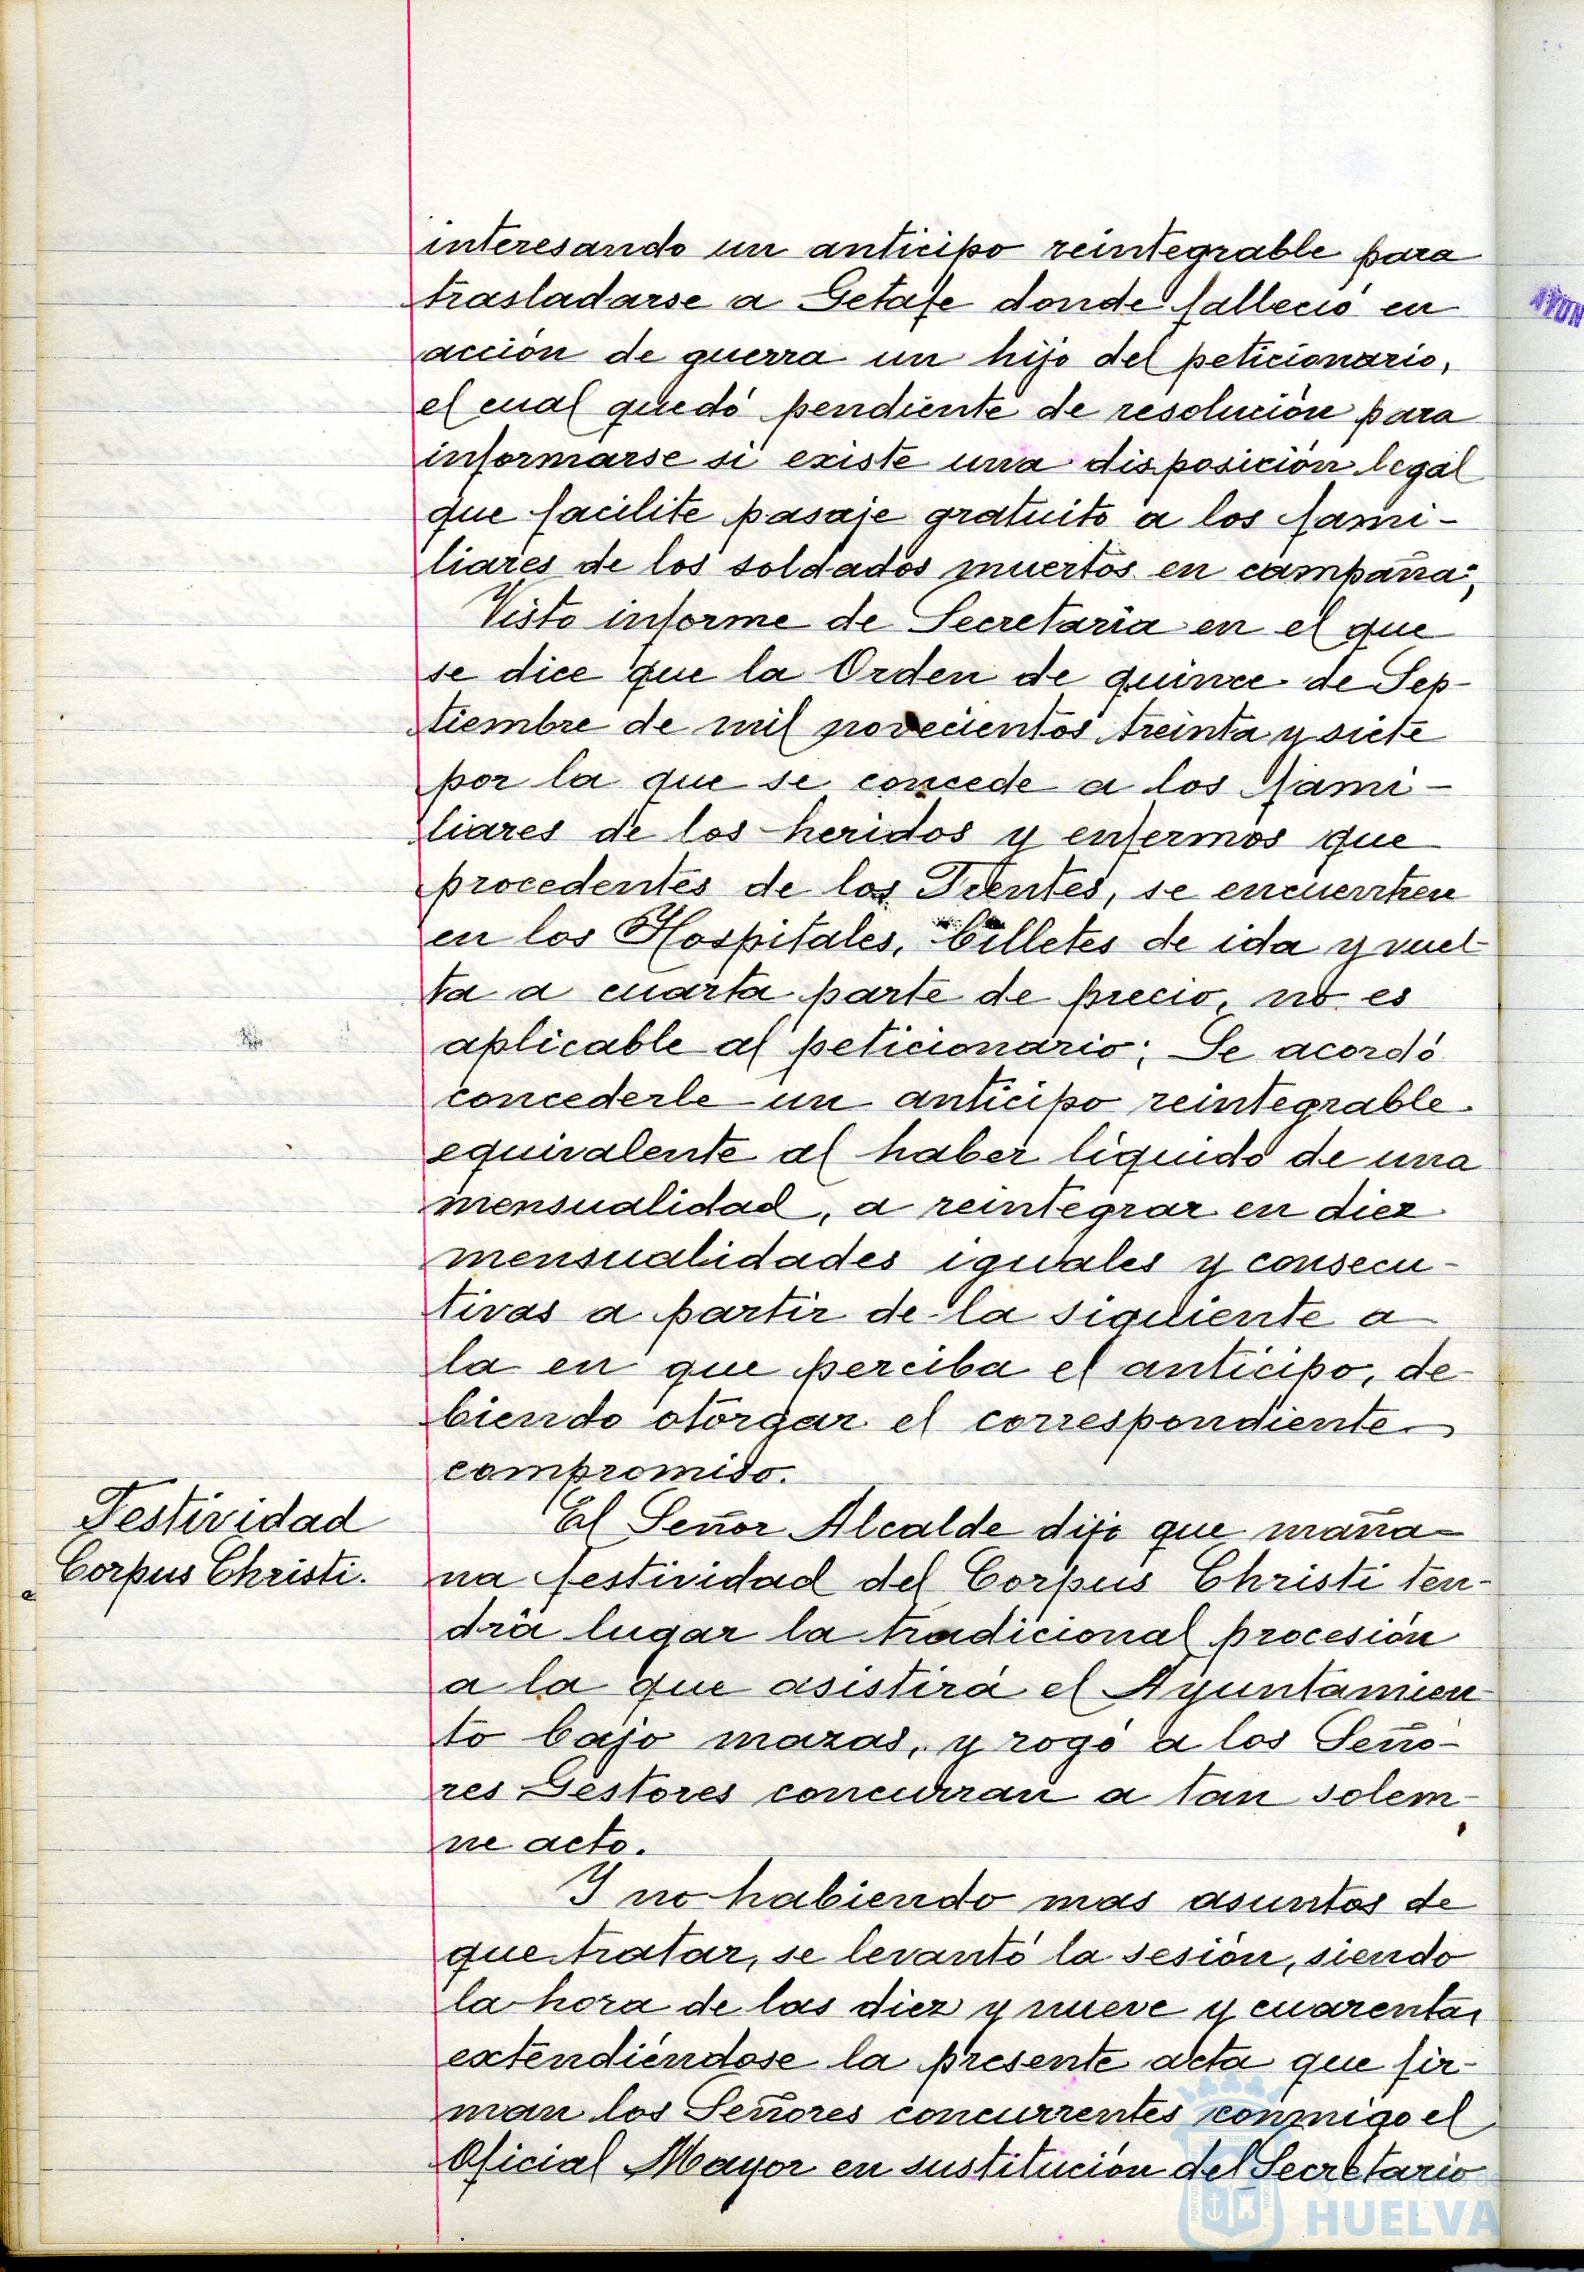 interesando un anticipo reintegrable para
trasladarse a Getafe donde falleció en
acción de guerra un hijo del peticionario,
el cual quedó pendiente de resolución para
informarse si existe una disposición legal
que facilite pasaje gratuito a los fami-
liares de los soldados muertos en campaña;
Visto informe de Secretaría en el que
se dice que la Orden de quince de Sep-
tiembre de mil novecientos treinta y siete
por la que se concede a los fami-
liares de los heridos y enfermos que
procedentes de los Frentes, se encuentren
en los Hospitales, billetes de ida y vuel-
ta a cuarta parte de precio, no es
aplicable al peticionario; Se acordó
concederle un anticipo reintegrable
equivalente al haber líquido de una
mensualidad, a reintegrar en diez
mensualidades iguales y consecu-
tivas a partir de la siguiente a
la en que perciba el anticipo, de-
biendo otorgar el correspondiente
compromiso.
Festividad
Corpus Christi.
El Señor Alcalde dijo que maña-
na festividad del Corpus Christi ten-
drá lugar la tradicional procesión
a la que asistirá el Ayuntamien-
to bajo mazas, y rogó a los Seño-
res Gestores concurran a tan solem-
ne acto.
Y no habiendo mas asuntos de
que tratar, se levantó la sesión, siendo
la hora de las diez y nueve y cuarenta,
extendiéndose la presente acta que fir-
man los Señores concurrentes conmigo el
Oficial Mayor en sustitución del Secretario
AYUN
Ayuntamiento de
HUELVA